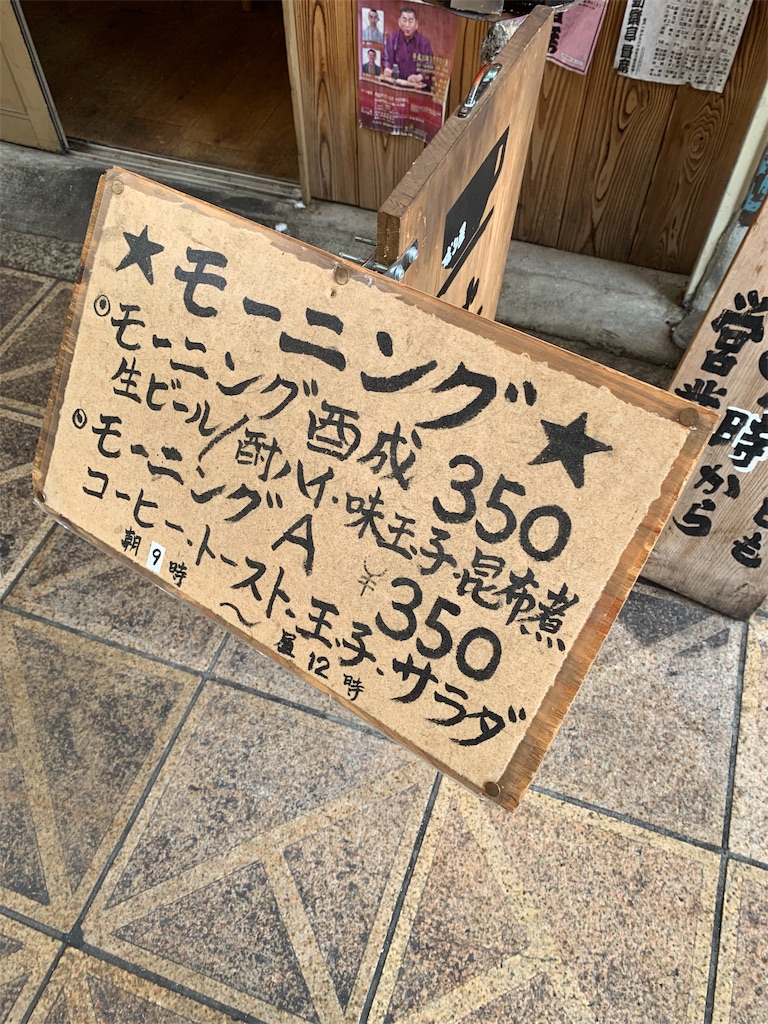 ★モーニング★
◉モーニング酉成 350
生ビール/酎ハイ・味玉子・昆布煮
◉モーニングA ¥350
コーヒー・トースト・玉子・サラダ
朝9時〜昼12時
営業時
から
日も